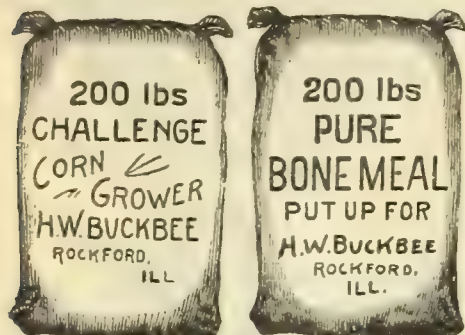 200 lbs
CHALLENGE
CORN
GROWER
H.W.BUCKBEE
ROCKFORD,
ILL
200 lbs
PURE
BONE MEAL
PUT UP FOR
H.W.BUCKBEE
ROCKFORD,
ILL.